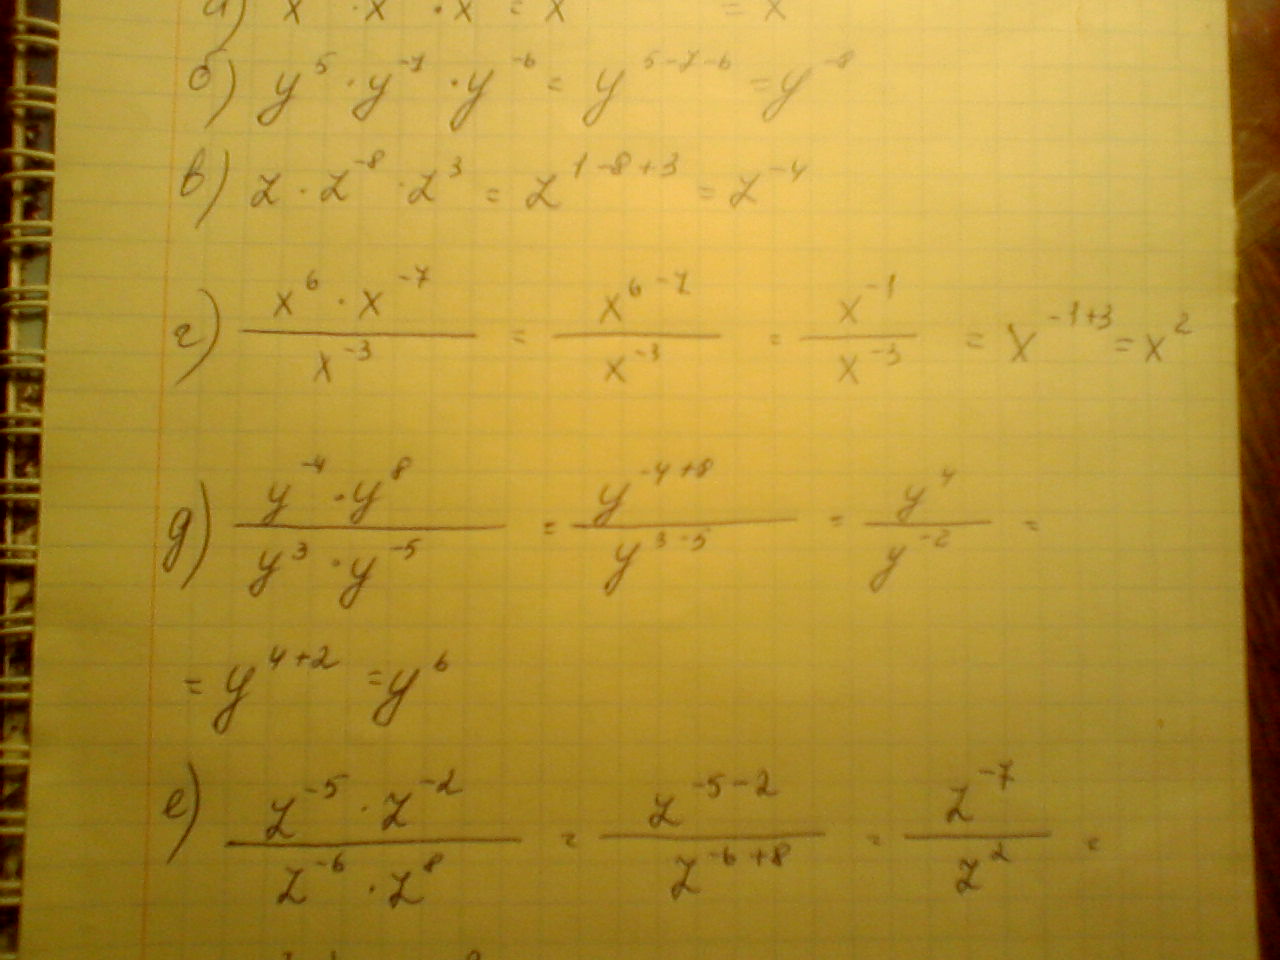 б) y⁵ · y⁻⁷ · y⁻⁶ = y⁵⁻⁷⁻⁶ = y⁻⁸
в) z · z⁻⁸ · z³ = z¹⁻⁸⁺³ = z⁻⁴
г) (x⁶ · x⁻⁷)/(x⁻³) = (x⁶⁻⁷)/(x⁻³) = (x⁻¹)/(x⁻³) = x⁻¹⁺³ = x²
д) (y⁻⁴ · y⁸)/(y³ · y⁻⁵) = (y⁻⁴⁺⁸)/(y³⁻⁵) = (y⁴)/(y⁻²) =
= y⁴⁺² = y⁶
е) (z⁻⁵ · z⁻²)/(z⁻⁶ · z⁸) = (z⁻⁵⁻²)/(z⁻⁶⁺⁸) = (z⁻⁷)/(z²) =